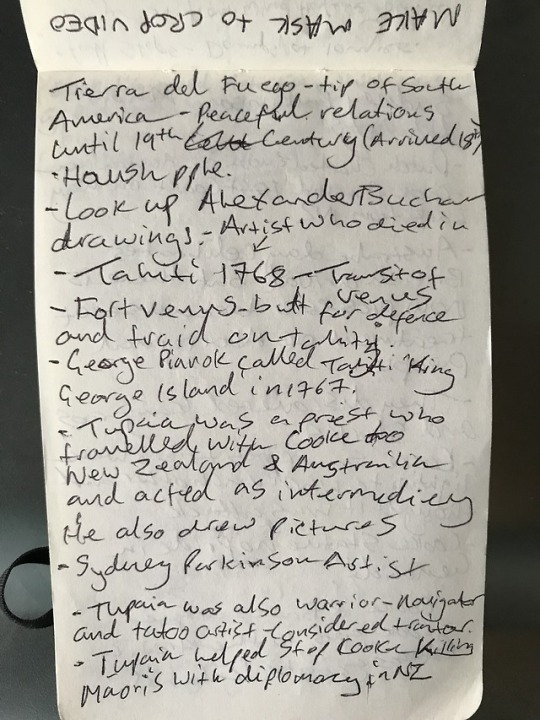 MAKE MASK to CROP VIDEO
Tierra del Fuego - tip of South
America - Peaceful relations
until 19th Century (Arrived 18th)
· Haush pple.
- Look up Alexander Buchan
drawings. - Artist who died in
- Tahiti 1768 - Transit of
Venus
- Fort venus - built for defence
and traid on tahity
- George Pianok called Tahiti King
George Island in 1767.
- Tupaia was a priest who
travelled with Cooke too
New Zealand & Austrailia
and acted as intermediery
He also drew pictures
- Sydney Parkinson Artist
- Tupaia was also warrior - navigator
and tatoo artist - considered traitor.
- Tupaia helped stop Cooke Killing
Maoris with diplomacy in NZ